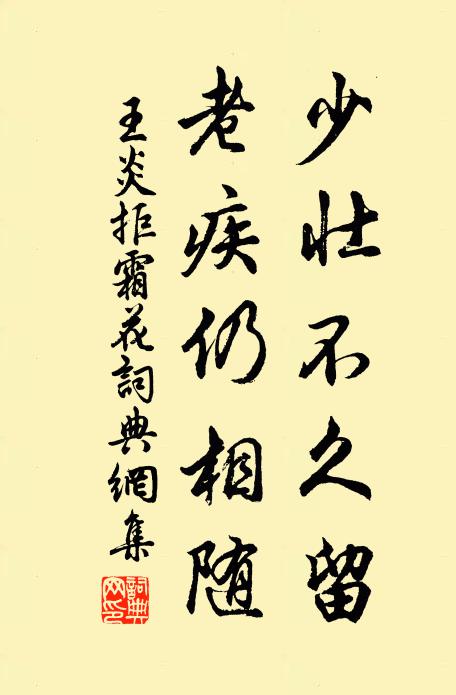 少壮不久留
老疾仍相随
王炎拒霜花詞典網集
詞典网印